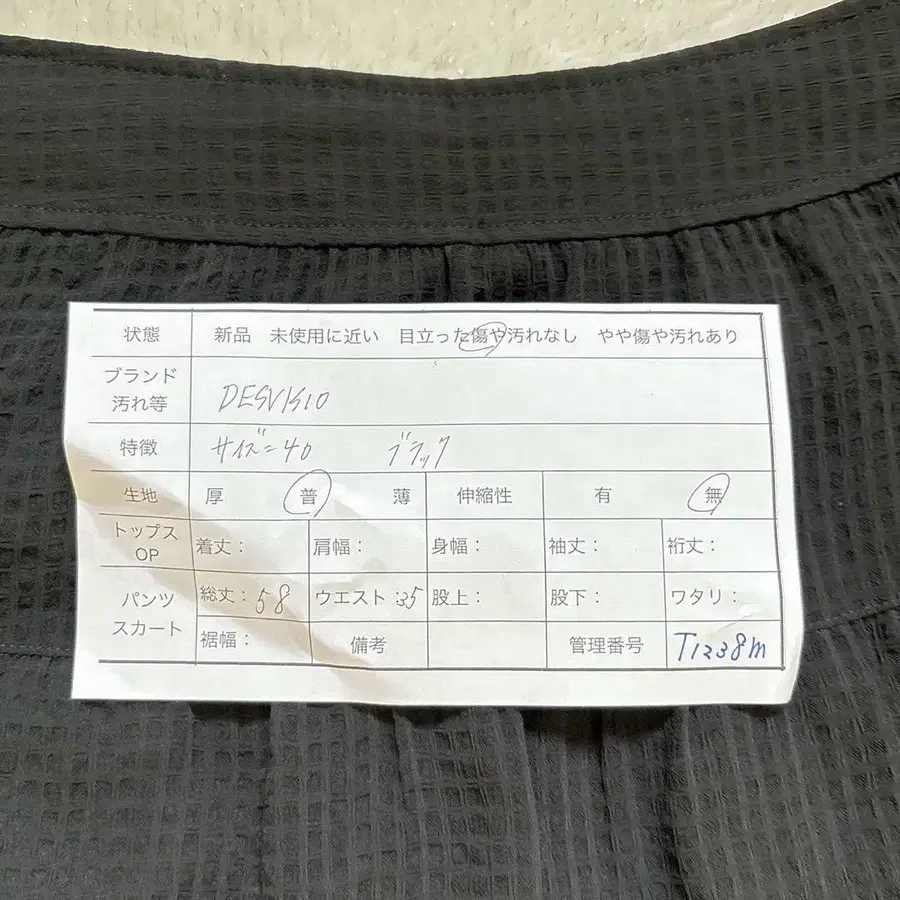 状態 新品 未使用に近い 目立った傷や汚れなし やや傷や汚れあり
ブランド
汚れ等
DESVISIO
特徴 サイズ=40 ブラック
生地 厚 普 薄 伸縮性 有 無
トップス
OP
着丈: 肩幅: 身幅: 袖丈: 裄丈:
パンツ
スカート
総丈:58 ウエスト:35 股上: 股下: ワタリ:
裾幅: 備考 管理番号 T1238m